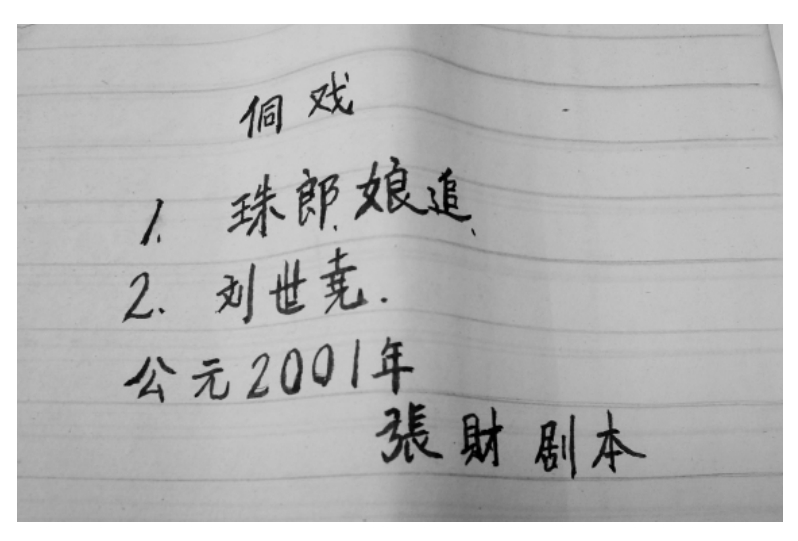 侗戏
1. 珠郎娘追
2. 刘世尧.
公元2001年
張財剧本